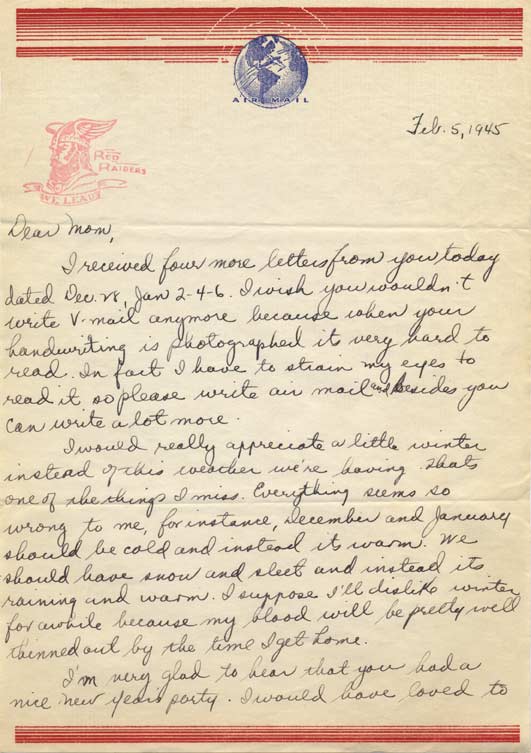 AIR MAIL
Feb. 5, 1945
THE RED RAIDERS
WE LEAD
Dear Mom,
I received four more letters from you today
dated Dec. 28, Jan 2-4-6. I wish you wouldn't
write V-mail anymore because when your
handwriting is photographed it very hard to
read. In fact I have to strain my eyes to
read it so please write air mail and besides you
can write a lot more.
I would really appreciate a little winter
instead of this weather we're having. Thats
one of the things I miss. Everything seems so
wrong to me, for instance, December and January
should be cold and instead it warm. We
should have snow and sleet and instead its
raining and warm. I suppose I'll dislike winter
for awhile because my blood will be pretty well
thinned out by the time I get home.
I'm very glad to hear that you had a
nice New Years party. I would have loved to